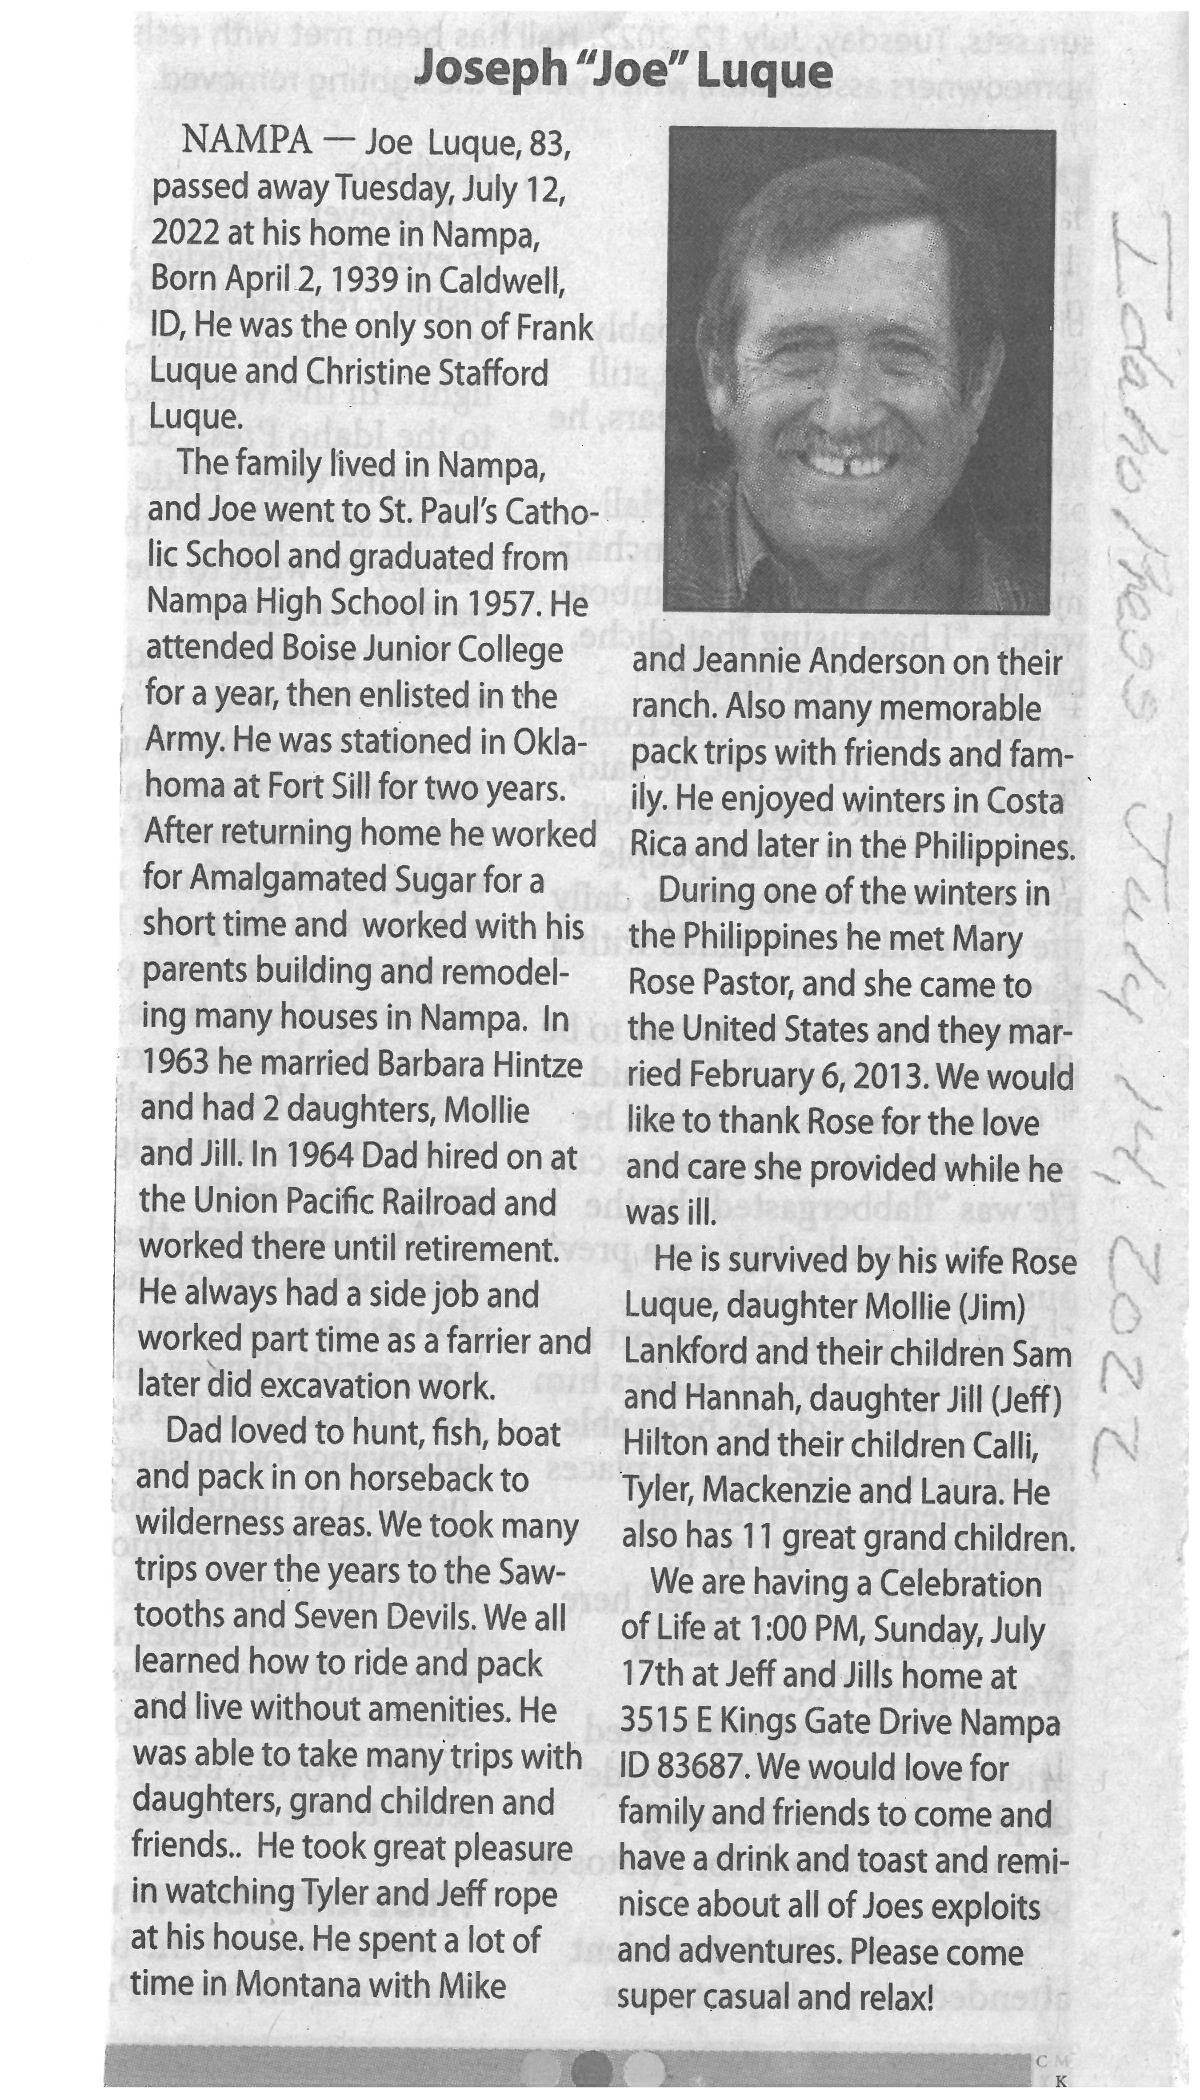 Joseph “Joe” Luque
NAMPA — Joe Luque, 83,
passed away Tuesday, July 12,
2022 at his home in Nampa,
Born April 2, 1939 in Caldwell,
ID, He was the only son of Frank
Luque and Christine Stafford
Luque.
The family lived in Nampa,
and Joe went to St. Paul’s Catho-
lic School and graduated from
Nampa High School in 1957. He
attended Boise Junior College
for a year, then enlisted in the
Army. He was stationed in Okla-
homa at Fort Sill for two years.
After returning home he worked
for Amalgamated Sugar for a
short time and worked with his
parents building and remodel-
ing many houses in Nampa. In
1963 he married Barbara Hintze
and had 2 daughters, Mollie
and Jill. In 1964 Dad hired on at
the Union Pacific Railroad and
worked there until retirement.
He always had a side job and
worked part time as a farrier and
later did excavation work.
Dad loved to hunt, fish, boat
and pack in on horseback to
wilderness areas. We took many
trips over the years to the Saw-
tooths and Seven Devils. We all
learned how to ride and pack
and live without amenities. He
was able to take many trips with
daughters, grand children and
friends.. He took great pleasure
in watching Tyler and Jeff rope
at his house. He spent a lot of
time in Montana with Mike
and Jeannie Anderson on their
ranch. Also many memorable
pack trips with friends and fam-
ily. He enjoyed winters in Costa
Rica and later in the Philippines.
During one of the winters in
the Philippines he met Mary
Rose Pastor, and she came to
the United States and they mar-
ried February 6, 2013. We would
like to thank Rose for the love
and care she provided while he
was ill.
He is survived by his wife Rose
Luque, daughter Mollie (Jim)
Lankford and their children Sam
and Hannah, daughter Jill (Jeff)
Hilton and their children Calli,
Tyler, Mackenzie and Laura. He
also has 11 great grand children.
We are having a Celebration
of Life at 1:00 PM, Sunday, July
17th at Jeff and Jills home at
3515 E Kings Gate Drive Nampa
ID 83687. We would love for
family and friends to come and
have a drink and toast and remi-
nisce about all of Joes exploits
and adventures. Please come
super casual and relax!
Idaho Press July 14, 2022
C M
K